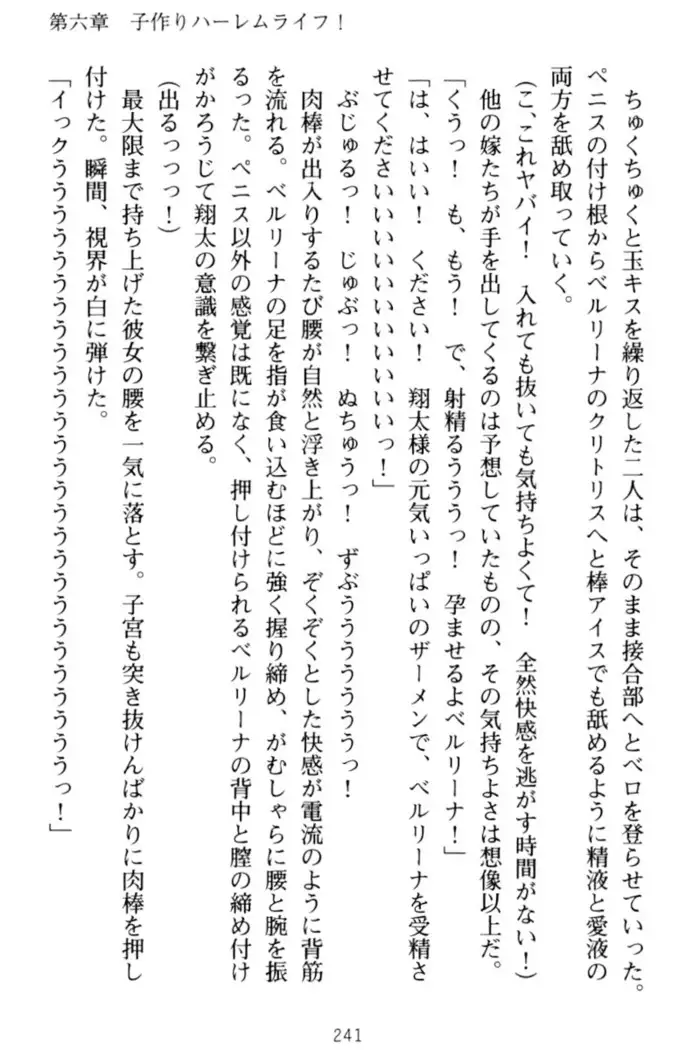 第六章　子作りハーレムライフ！
ちゅくちゅくと玉キスを繰り返した二人は、そのまま接合部へとベロを登らせていった。
ペニスの付け根からベルリーナのクリトリスへと棒アイスでも舐めるように精液と愛液の
両方を舐め取っていく。
（こ、これヤバイ！　入れても抜いても気持ちよくて！　全然快感を逃がす時間がない！）
他の嫁たちが手を出してくるのは予想していたものの、その気持ちよさは想像以上だ。
「くうっ！　も、もう！　で、射精るうううっ！　孕ませるよベルリーナ！」
「は、はいい！　ください！　翔太様の元気いっぱいのザーメンで、ベルリーナを受精さ
せてくださいいいいいいいいいいいっ！」
ぶじゅるっ！　じゅぶっ！　ぬちゅうっ！　ずぶうううううううっ！
肉棒が出入りするたび腰が自然と浮き上がり、ぞくぞくとした快感が電流のように背筋
を流れる。ベルリーナの足を指が食い込むほどに強く握り締め、がむしゃらに腰と腕を振
るった。ペニス以外の感覚は既になく、押し付けられるベルリーナの背中と膣の締め付け
がかろうじて翔太の意識を繋ぎ止める。
（出るっっっ！）
最大限まで持ち上げた彼女の腰を一気に落とす。子宮も突き抜けんばかりに肉棒を押し
付けた。瞬間、視界が白に弾けた。
「イックうううううううううううううううううううううううううううううっ！」
241